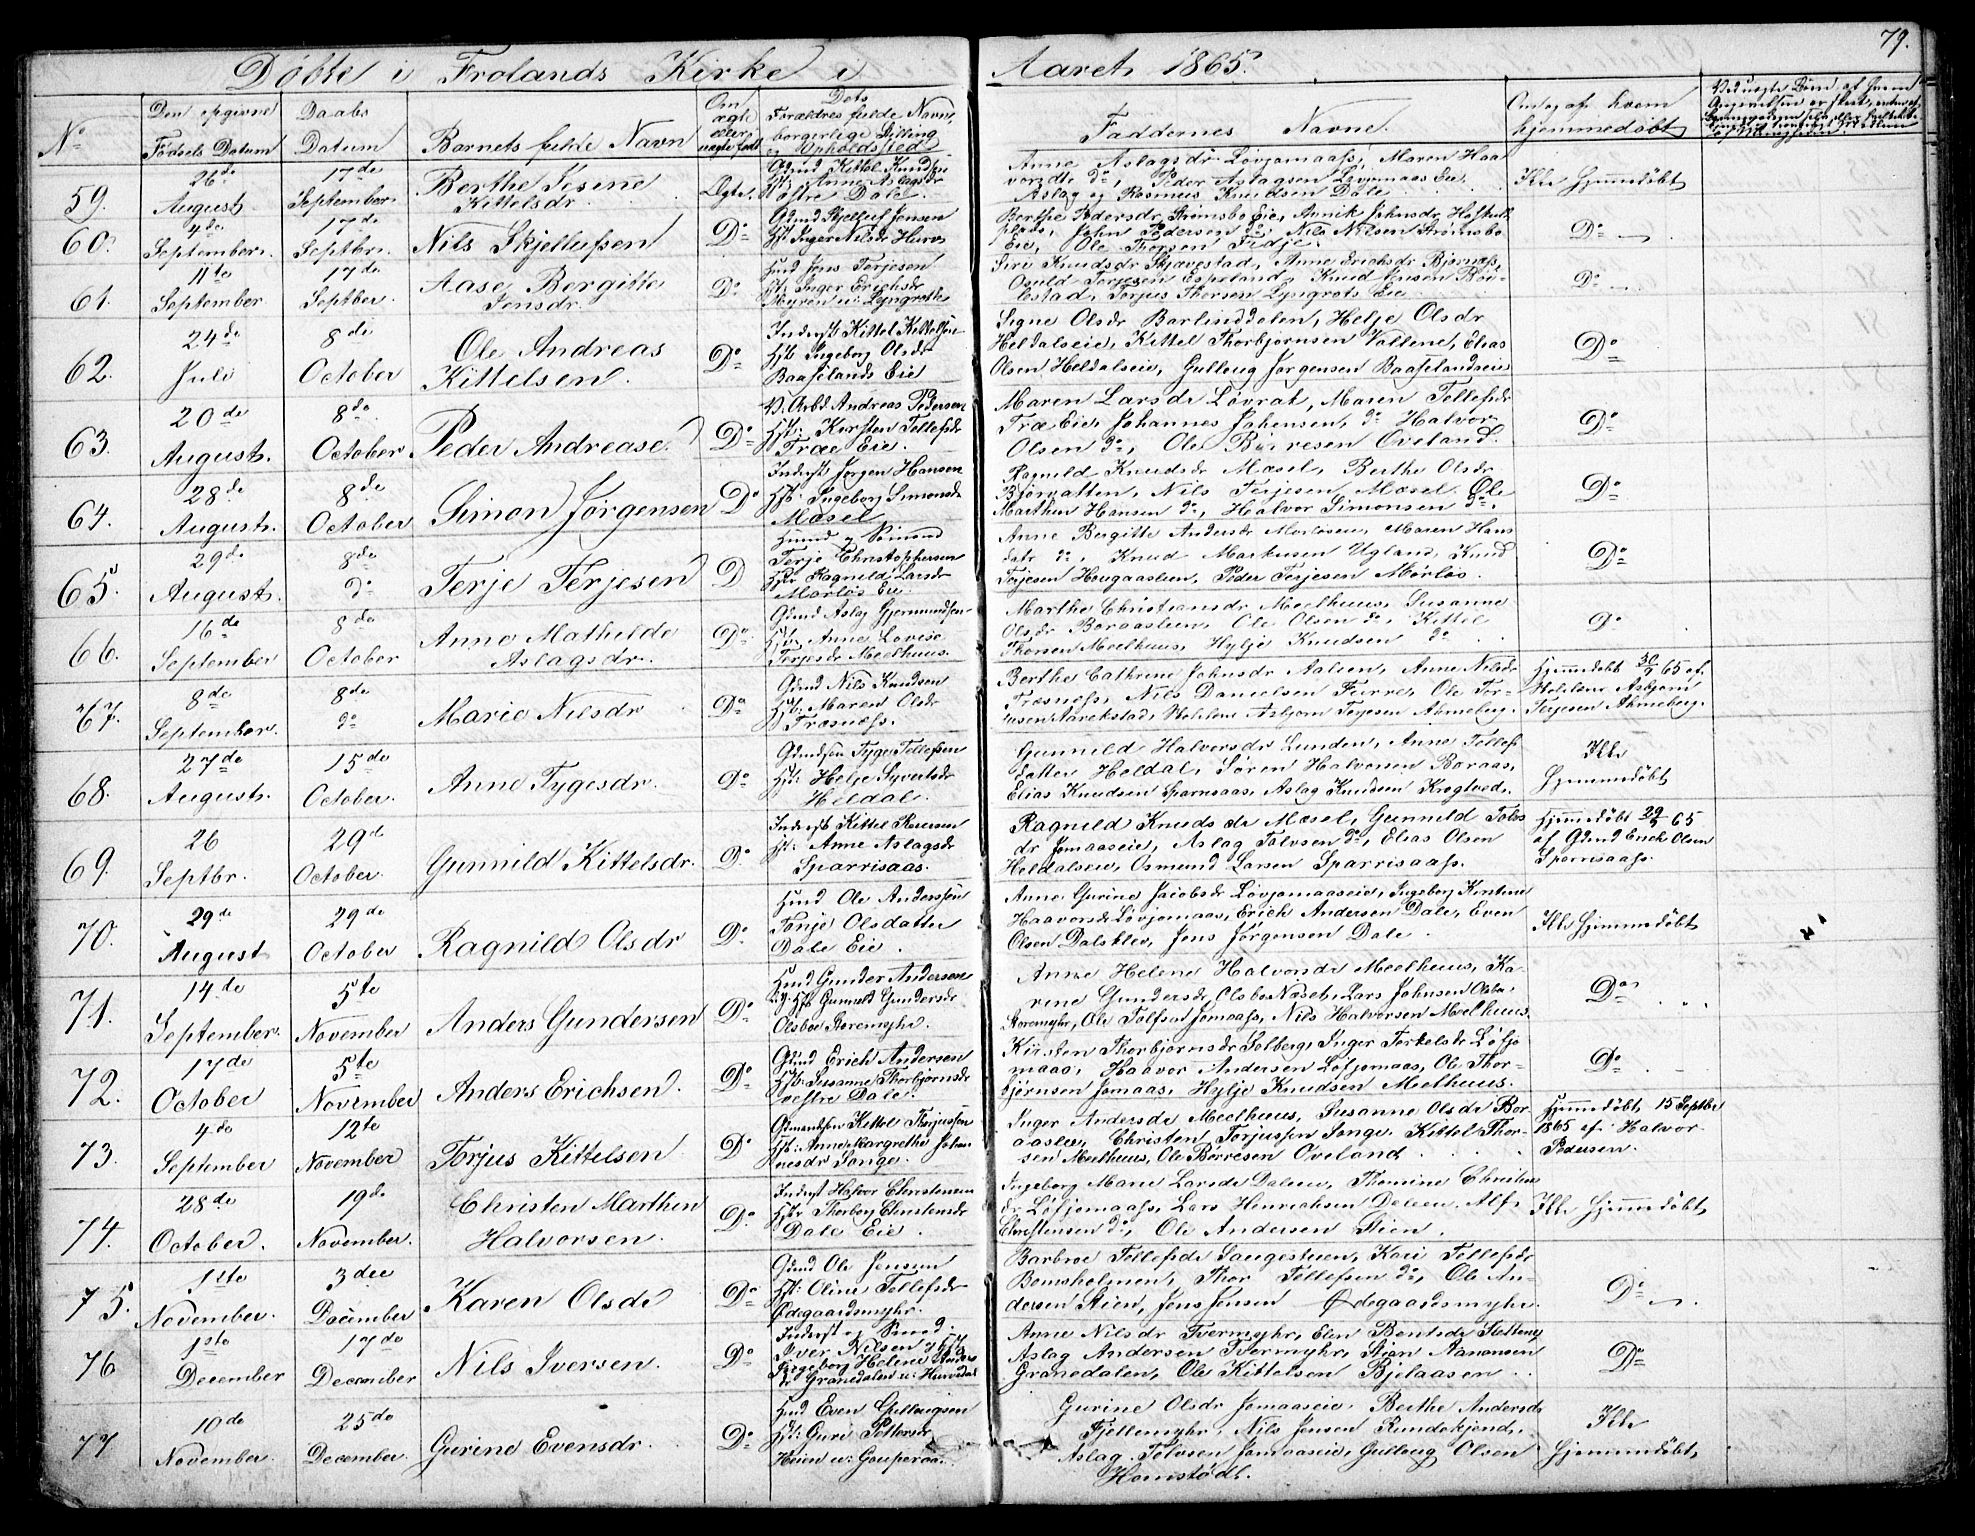 79.
Døbte i Frolands Kirke i Aaret 1865.
No
Den opgivne Fødsels Datum
Daabs Datum
Barnets fulde Navn
Om ægte eller uægte født
Dets Forældres fulde Navn, borgerlige Stilling og Opholdssted
Faddernes Navne.
Om og af hvem hjemmedøbt
59.
26de August
17de September
Berthe Kittelsdr.
Ægte.
Gmd Kittel Knudsen
Hst. Anne Aslagsdr
Vestre Dale.
Anne Aslagsdr. Løvjomaass, Maren Haa
vorsdtr do, Peder Aslagsen Løvjomaas Eie
Aslag og Rasmus Knudsen Dale
Ikke Hjemmedøbt
60.
4de September.
17de Septbr.
Nils Skjellufsen
Do
Gmd Skjelluf Jensen
Hst Inger Nilsdr Hurv
Berthe Pedersdr, Strømsbo Eie, Annik Johnsdr
John Pedersen do, Nils Nilsen Strømsbo
Eie, Ole Thorsen Fidje.
Do
61.
11te September
17de Septber.
Aase Bergitte
Jensdr.
Do
Hmd Jens Terjesen
Hst: Inger Erichsdr
Myren u: Lyngroth
Siri Knudsdr Skjævestad, Anne Erichsdr Bjørnæss,
Osuld Terjesen Espeland, Knud Jensen Bøv-
lestad, Torjus Thorsen Lyngrots Eie
Do
62.
24de Juli
8de October
Ole Andreas
Kittelsen.
Do
Inderst Kittel Kittelsen
Hst Ingeborg Olsdr
Baaselands Eie
Signe Olsdr Barlinddalen, Helje Olsdr
Heldalseie, Kittel Thorbjørnsen Vallene, Elias
Olsen Heldalseie, Gulloug Jørgensen Baaselandseie
Do
63.
20de August.
8de October
Peder Andreasen
Do
Arbd. Andreas Pedersen
Hst: Kirsten Tellefsdr
Træe Eie.
Maren Larsdr Løvrak, Maren Tellefsdr
Træ Eie, Johannes Johensen, do Halvor
Olsen do, Ole Børresen Oveland.
Do
64.
28de August.
8de October
Simon Jørgensen
Do
Inderst Jørgen Hansen
Hst: Ingeborg Simonsdr
Mæsel
Ragnild Knudsdr Mæsel, Berthe Olsdr
Bjørvatten, Nils Terjesen Mæsel. Ole
Marthin Hansen do, Halvor Simonsen do.
Do
65.
29de August.
8de do
Terje Terjesen
D
Huusmd og Smed
Terje Christophersen
Hst Ragnild Larsdr
Mørløs Eie
Anne Birgitte Andersdr Mørløsen, Maren Hans
datr do, Knud Markusen Ugland, Knud
Terjesen Hougaasleen, Peder Terjesen Mørløs.
Do
66.
16de September
8de October
Anne Mathilde
Aslagsdr.
Do
Gmd Aslag Gjermundsen
Hst: Anne Lovise
Terjesdr Meelhuus.
Marthe Christiansdr Meelhuus, Susanne
Olsdr Boraasleen, Ole Olsen do, Kittil
Thorsen Meelhuus, Hylje Knudsen do
Do
67.
8de September.
8de do
Marie Nilsdr
Do
Gmd Nils Knudsen
Hst: Maren Olsdr
Træsnæss.
Berthe Cathrine Johnsdr Aalsen, Anne Nilsdr
Træsnæss, Nils Danielsen Furre, Ole Ter-
jesen Aarekstad, Asbjørn Terjesen
Hjemmedøbt 30/9 65 af
Asbjørn
Terjesen
68.
27de August.
15de October.
Anne Tygesdr.
Do
Gmdsøn Tyge Tellefsen
Hst: Helje Syvertsdr
Heldal.
Gunnild Halvorsdr Lunden, Anne Tellefs
datter Heldal, Søren Halvorsen Boraas,
Elias Knudsen Sparnsaas, Aslag Knudsen Krogtved.
Ikke
Hjemmedøbt
69.
26 Septbr.
29de October.
Gunnild Kittelsdr.
Do
Inderst Kittel
Hst: Anne Aslagsdr
Sparrisaas.
Ragnild Knudsdr Mæsel, Gunnild Tolvs
dr Jomaaseie, Aslag Tolvsen do, Elias Olsen
Heldalseie, Osmund Larsen Sparrisaass.
Hjemmedøbt 65
af Gmd Erich Olsen
Sparrisaass.
70.
29de August
29de October
Ragnild Olsdr
Do
Hmd Ole Anderssøn
Tonje Olsdatter
Dale Eie.
Anne Gurine Jacobsdr Løvjomaaseie, Ingeborg Kirstine
Haavorsdr Løvjomaas, Erich Andersen Dale, Even
Olsen Dalsklev, Jens Jørgensen Dale.
Ikke Hjemmedøbt
71.
14de September.
5te November
Anders Gundersen
Do
Hmd Gunder Andersen
og Hst Gunnild Gundersdr
Olsboe Storemyhr.
Anne Helene Halvorsdr Meelhuus, Ka-
rine Gundersdr Olsboe Næset, Lars Johnsen Olsbo
Storemyhr, Ole Tolfsen Jomaass, Nils Halvorsen Meelhuus.
Do
72.
17de October
5te November
Anders Erichsen.
Do
Gmd Erich Andersen
Hst: Susanne Thorbjørnsdr
vestre Dale.
Kirsten Thorbjørnsdr Solberg, Inger Terkelsdr Løfjo
maas, Haavor Andersen Løfjomaas, Ole Thor-
bjørnsen Jomaas, Hylje Knudsen Meelhuus.
Do
73.
4de September
12te November
Torjus Kittelsen
Do
Gmandsøn Kittel Torjussøn
Hst: Anne Margrethe Johan
nesdr Songe.
Inger Andersdr Meelhuus, Susanne Olsdr Bor-
aaslee, Christen Torjussen Songe, Kittel Thor-
sen Meelhuus, Ole Børresen Oveland
Hjemmedøbt 15 Septbr
1865 af Halvor
Pedersen.
74.
28de October.
19de November.
Christen Marthin
Halvorsen.
Do
Inderst Halvor Christensen
Hst Thorborg Christensdr
Dale Eie.
Ingeborg Marie Larsdr Dalen, Thomine Christens
dr Løfjomaass, Lars Henrichsen Dalen, Alf
Christensen do, Ole Andersen Stien.
Ikke Hjemmedøbt
75.
1ste November.
3die December
Karen Olsdr
Do
Gmd Ole Jensen
Hst: Oline Tellefsdr
Ødegaardsmyhr.
Barbroe Tellefsdr Laugesteen, Kari Tellefsdr
Bomsholmen, Thor Tellefsen do, Ole An-
dersen Stien, Jens Jensen Ødegaardsmyhr.
Do
76
1ste December
17de December
Nils Iversen.
Do
Inderst og Smed.
Iver Nilsen og Hst
Ingeborg Helene Anders
dr Granedalen u: Hurvedal
Anne Nilsdr Tvermyhr, Elen Bentsdr
Aslag Andersen Tvermyhr, Stian Aanonsen
Granedalen, Ole Kittelsen Bjelaasen
Do
77
10de November.
25de December.
Gurine Evensdr.
Do
Hmd Even Gullougsen
Hst: Guri
Heien u: Gauperaa.
Gurine Olsdr Jomaaseie, Berthe Andersdr
Fjellemyhr, Nils Jensen Rundekjend,
Aslag Tolvsen Jomaaseie, Gulloug Olsen
Homstødl.
Ikke
Hjemmedøbt